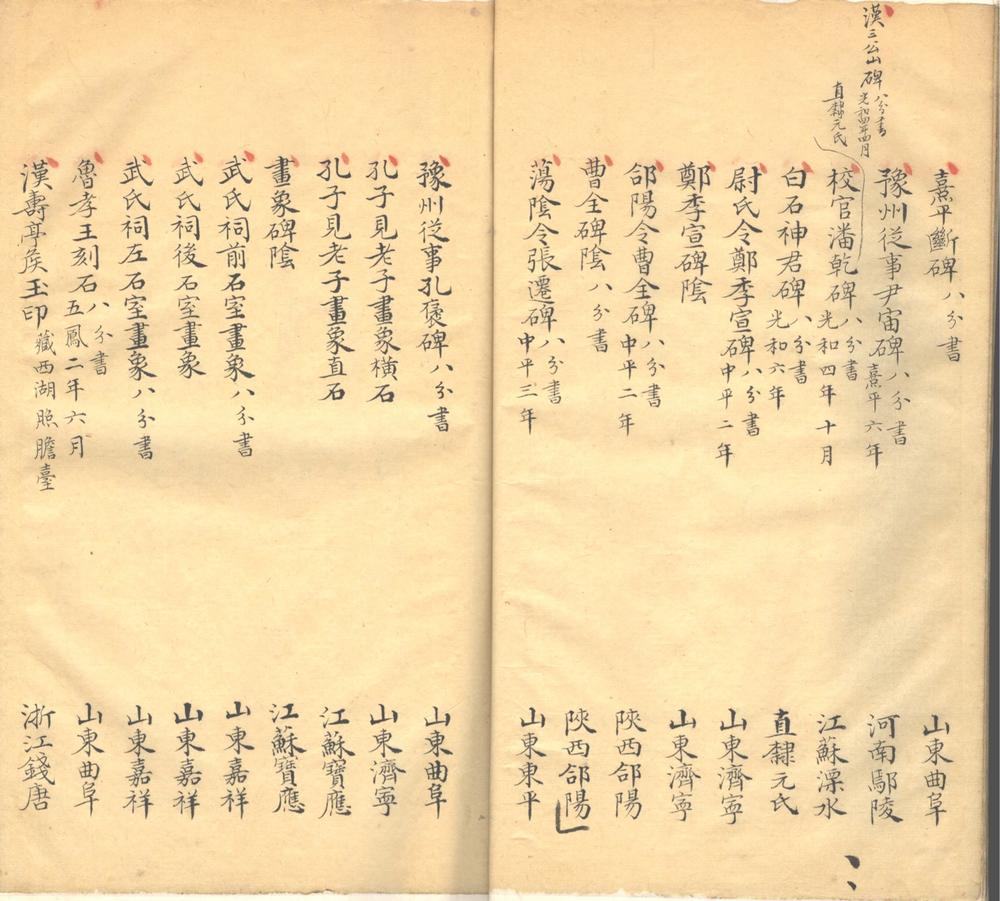 漢三公山碑 八分書 光和四年四月 直隸元氏
熹平斷碑 八分書 山東曲阜
豫州從事尹宙碑 八分書 熹平六年 河南鄢陵
校官潘乾碑 八分書 光和四年十月 江蘇溧水
白石神君碑 八分書 光和六年 直隸元氏
尉氏令鄭季宣碑 八分書 中平二年 山東濟寧
鄭季宣碑陰 山東濟寧
郃陽令曹全碑 八分書 中平二年 陝西郃陽
曹全碑陰 八分書 陝西郃陽
蕩陰令張遷碑 八分書 中平三年 山東東平
豫州從事孔褒碑 八分書 山東曲阜
孔子見老子畫象橫石 山東濟寧
孔子見老子畫象直石 江蘇寶應
畫象碑陰 江蘇寶應
武氏祠前石室畫象 八分書 山東嘉祥
武氏祠後石室畫象 山東嘉祥
武氏祠左石室畫象 八分書 山東嘉祥
魯孝王刻石 八分書 五鳳二年六月 山東曲阜
漢壽亭矦玉印 藏西湖照膽臺 浙江錢唐